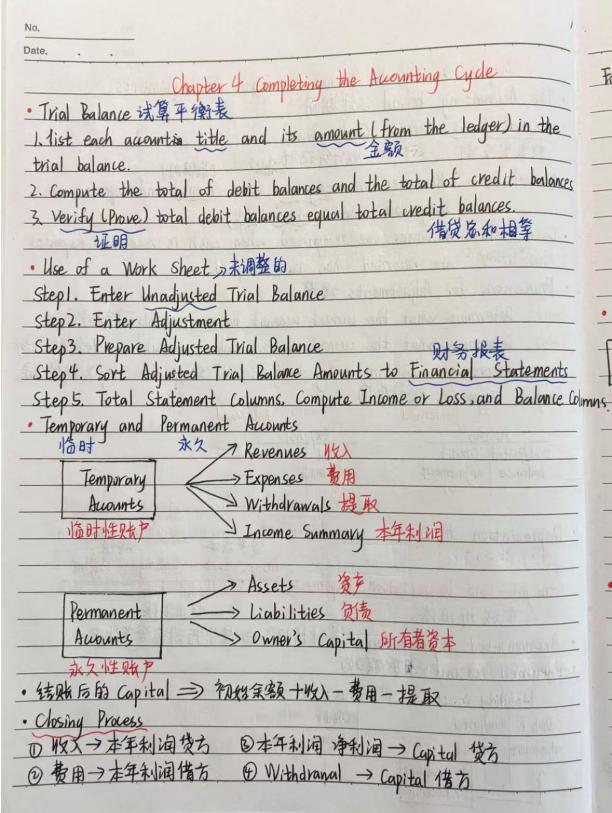 No.
Date. . .
Chapter 4 Completing the Accounting Cycle
• Trial Balance 试算平衡表
1. list each account's title and its amount (from the ledger) in the
金额
trial balance.
2. Compute the total of debit balances and the total of credit balances
3. Verify (Prove) total debit balances equal total credit balances.
证明 借贷总和相等
• Use of a Work Sheet → 未调整的
Step1. Enter Unadjusted Trial Balance
Step2. Enter Adjustment
Step3. Prepare Adjusted Trial Balance
财务报表
Step4. Sort Adjusted Trial Balance Amounts to Financial Statements
Step5. Total Statement Columns, Compute Income or Loss, and Balance Columns
• Temporary and Permanent Accounts
临时 永久
Temporary Accounts
临时性账户
→ Revenues 收入
→ Expenses 费用
→ Withdrawals 提取
→ Income Summary 本年利润
Permanent Accounts
永久性账户
→ Assets 资产
→ Liabilities 负债
→ Owner's Capital 所有者资本
• 结账后的 Capital ⇒ 初始余额+收入-费用-提取
• Closing Process
① 收入→本年利润贷方 ③ 本年利润 净利润→Capital 贷方
② 费用→本年利润借方 ④ Withdrawal → Capital 借方